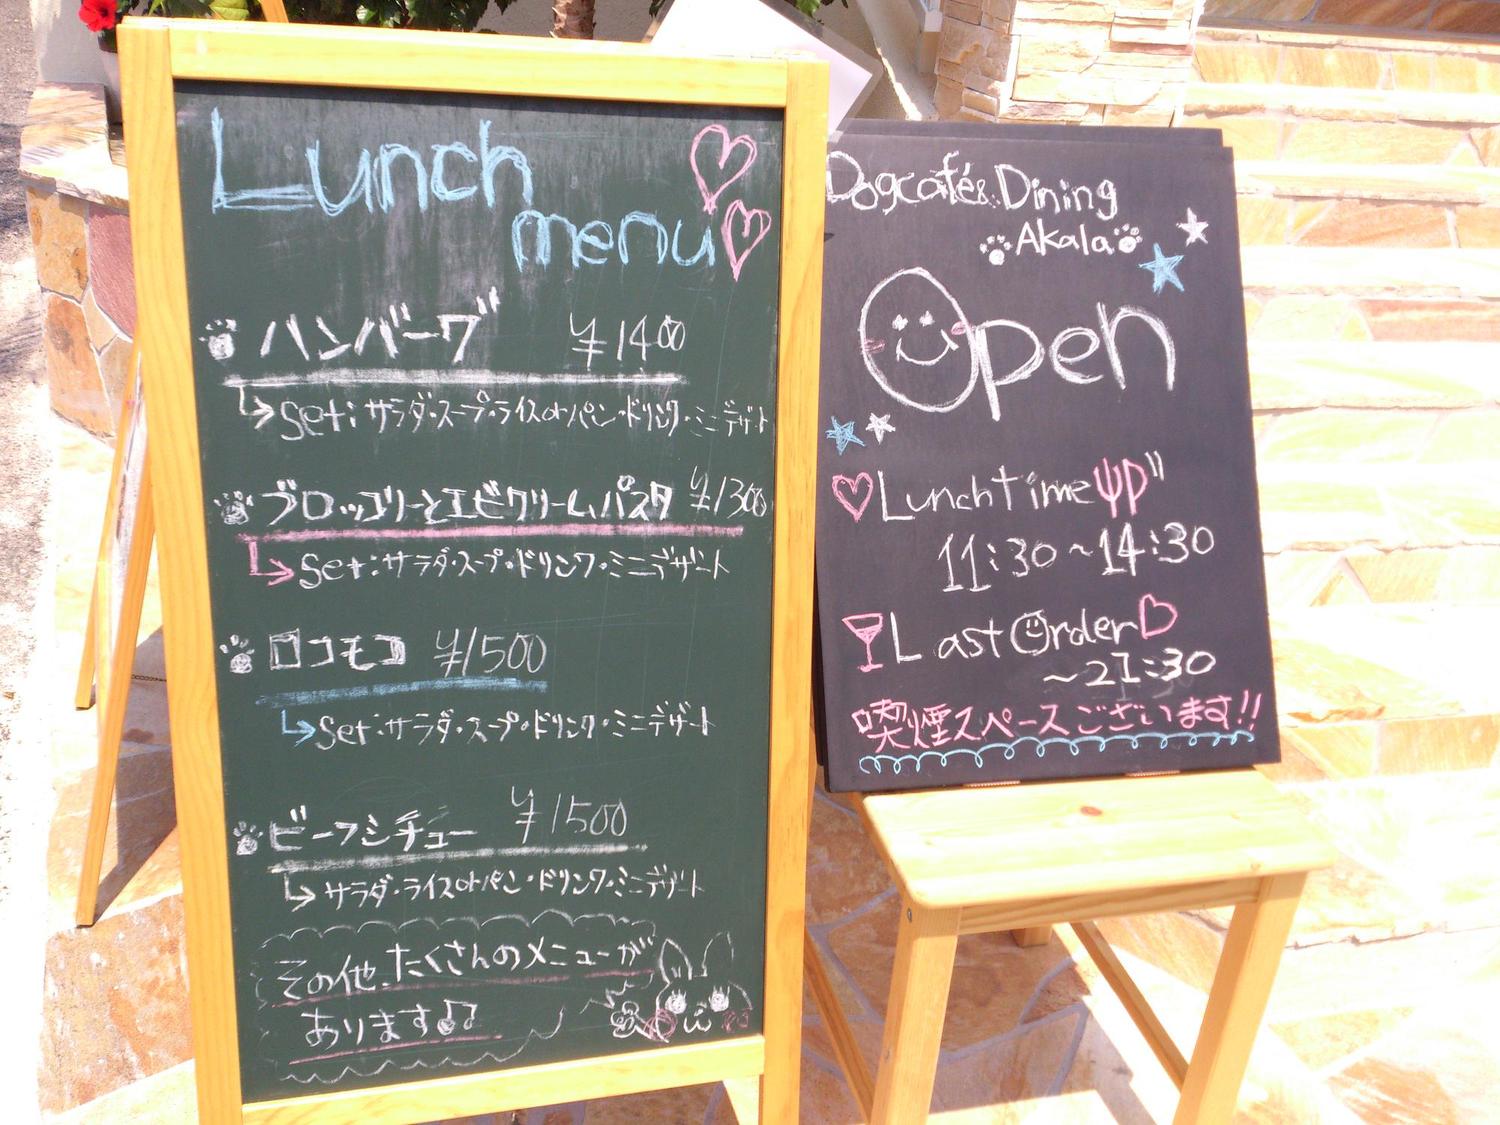 Lunch
menu
ハンバーグ ¥1400
set:サラダ・スープ・ライスorパン・ドリンク・ミニデザート
ブロッコリーとエビクリームパスタ ¥1300
set:サラダ・スープ・ドリンク・ミニデザート
ロコモコ ¥1500
set・サラダ・スープ・ドリンク・ミニデザート
ビーフシチュー ¥1500
サラダ・ライスorパン・ドリンク・ミニデザート
その他、たくさんのメニューが
あります♫
Dogcafé&Dining
Akala
Open
Lunchtime
11:30~14:30
Last Order
~21:30
喫煙スペースございます!!